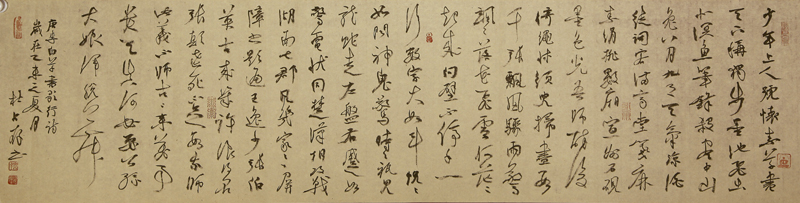 少年上人號懷素草書
天下稱獨步墨池飛出
北溟魚筆鋒殺盡中山
兔八月九月天氣涼酒
徒詞客滿高堂箋麻
素絹排數廂宣州石硯
墨色光吾師醉後
倚繩床須臾掃盡數
千張飄風驟雨驚
颯颯落花飛雪何茫茫
起來向壁不停手一
行數字大如斗恍恍
如聞神鬼驚時時只見
龍蛇走左盤右蹙如
驚電狀同楚漢相攻戰
湖南七郡凡幾家家家屏
障書題遍王逸少張伯
英古來幾許浪得名
張顛老死不足數我師
此義不師古古來萬事
貴天生何必要公孫
大娘渾脫舞
唐李白草書歌行詩
歲在乙未之夏月
杜